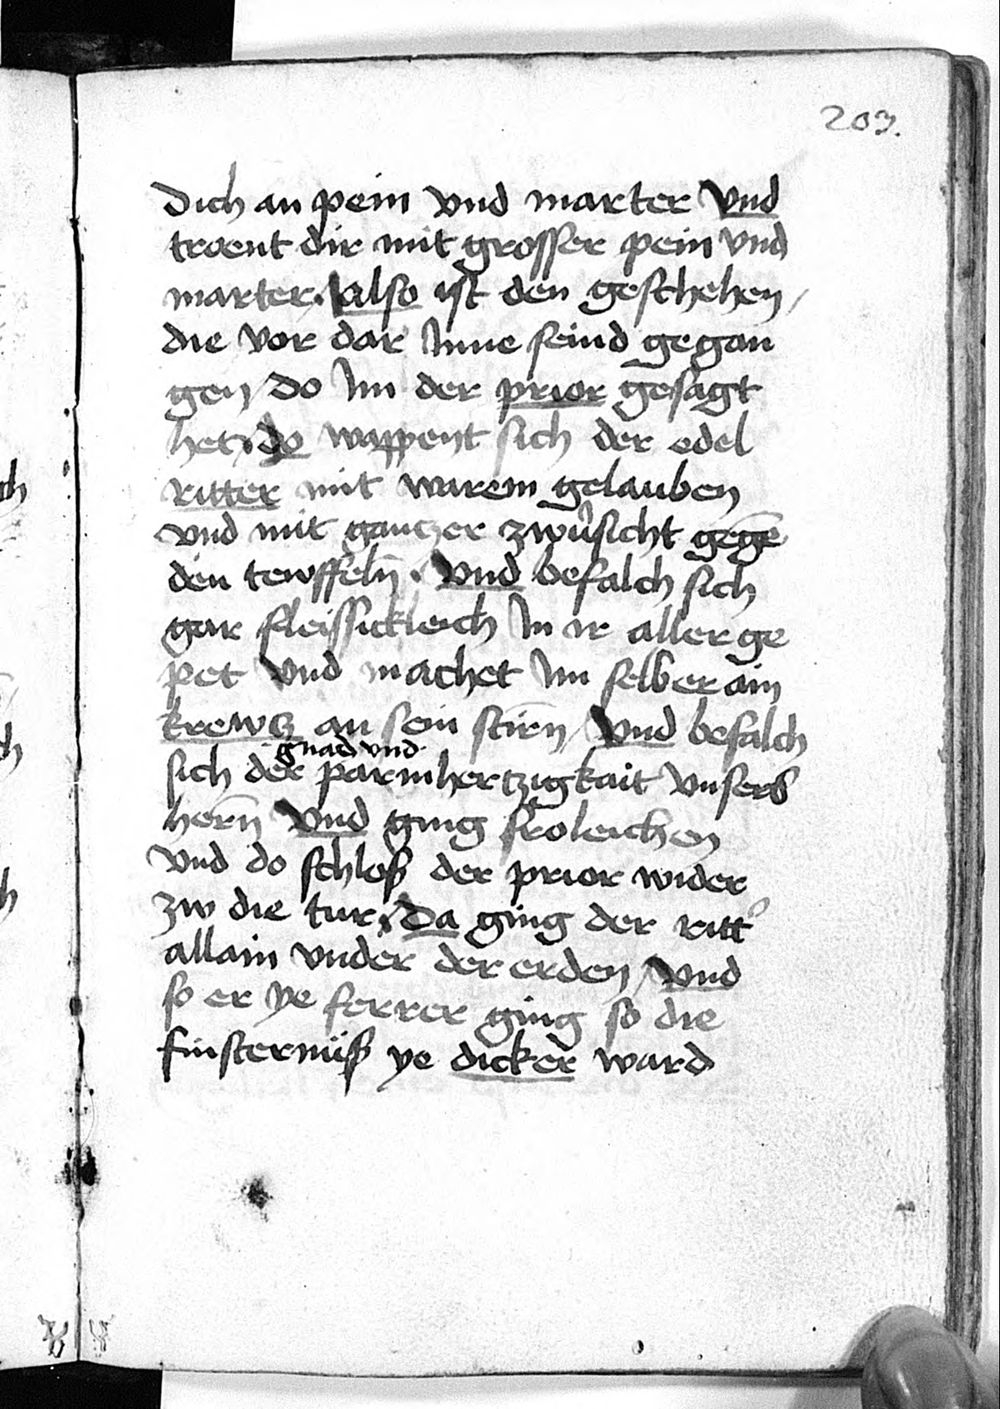 203.
Dich an pein vnd marter vnd
troent dir mit grosser pein vnd
marter. Also ist den geschehen /
die vor dar Inne seind gegan
gen / Do Im der prior gesagt
het. do wappent sich der edel
ritter mit warem gelauben
vnd mit gantzer zwůsicht gegē
den tewffelñ. Vnd befalch sich
gar fleissickleich In ir aller ge
pet vnd machet Im selber ain
krewtz an sein stirñ / Vnd befalch
gnad vnd
sich der parmhertzigkait vnsers
herñ Vnd ging froleichen
vnd do schloß der prior wider
zw die tur. Da ging der ritt᾽
allain vnder der erden / Vnd
so er ye ferrer ging so die
finsternüß ye dicker ward